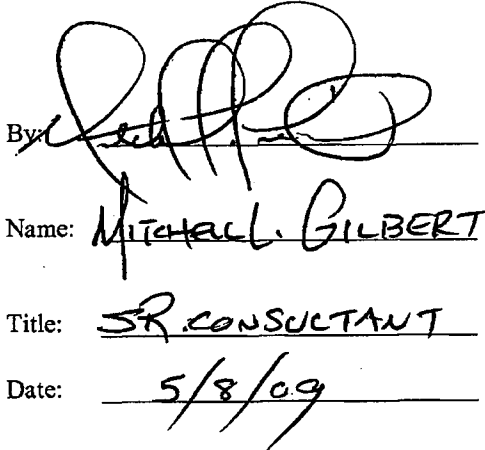 By:
Name: MITCHELL L. GILBERT
Title: SR. CONSULTANT
Date: 5/8/09